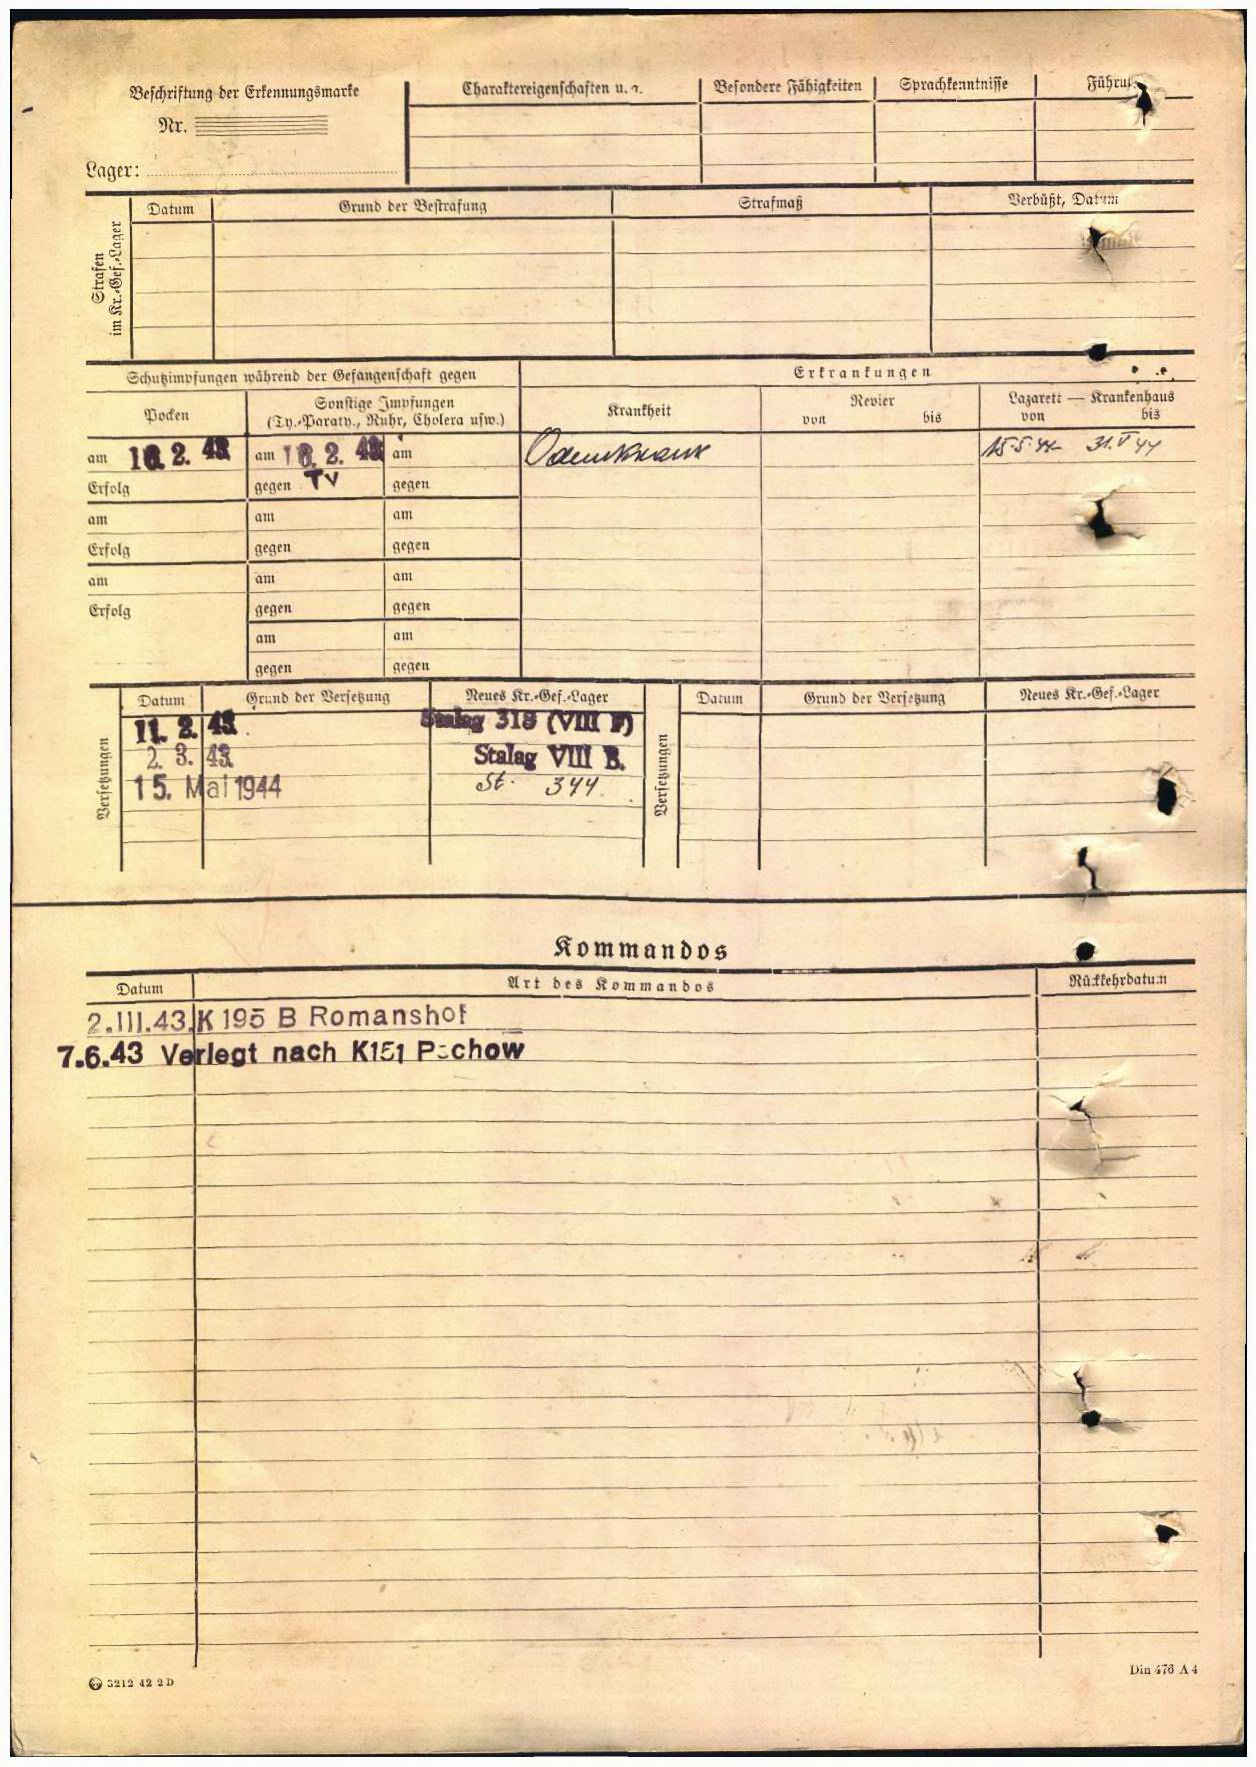 Beschriftung der Erkennungsmarke
Nr.
Lager:
Charaktereigenschaften u. a.
Besondere Fähigkeiten
Sprachkenntnisse
Strafen im Kr.-Gef.-Lager
Datum
Grund der Bestrafung
Strafmaß
Verbüßt, Datum
Schutzimpfungen während der Gefangenschaft gegen
Erkrankungen
Pocken
Sonstige Impfungen
(Ty.-Paraty., Ruhr, Cholera usw.)
Krankheit
Revier
von bis
Lazarett — Krankenhaus
von bis
am 16.2.43 am 16.2.43 am
15.5.44 31.V 44
Erfolg gegen Ty gegen
am am am
Erfolg gegen gegen
am am am
Erfolg gegen gegen
am am
gegen gegen
Versetzungen
Datum Grund der Versetzung Neues Kr.-Gef.-Lager
11. 2. 43. Stalag 318 (VIII F)
2. 3. 43. Stalag VIII B.
15. Mai 1944 St. 344.
Versetzungen
Datum Grund der Versetzung Neues Kr.-Gef.-Lager
Kommandos
Datum Art des Kommandos Rückkehrdatum
2.III.43 K 195 B Romanshof
7.6.43 Verlegt nach K151
3212 42 2 D
Din 476 A 4